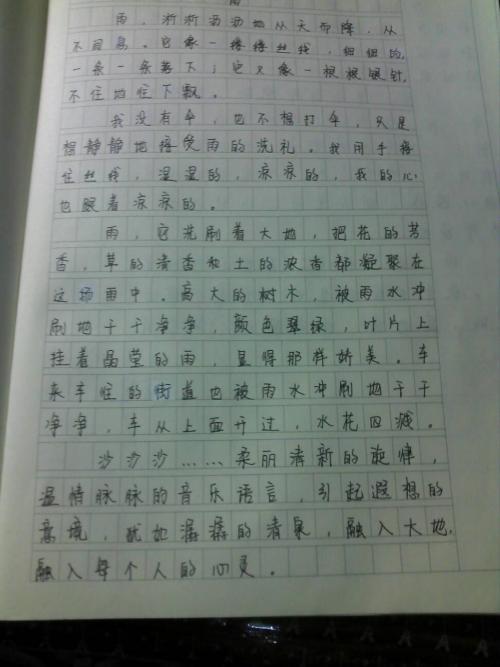 雨
雨，淅淅沥沥地从天而降，从
不同息。它像一缕缕丝线，细细的，
一条一条落下；它又像一根根银针，
不住地往下飘。
我没有伞，也不想打伞，只是
想静静地接受雨的洗礼。我用手接
住丝线，湿湿的，凉凉的，我的心
也跟着凉凉的。
雨，它洗刷着大地，把花的芳
香，草的清香和土的浓香都凝聚在
这场雨中。高大的树木，被雨水冲
刷地干干净净，颜色翠绿，叶片上
挂着晶莹的雨，显得那样娇美。车
来车往的街道也被雨水冲刷地干干
净净，车从上面开过，水花四溅。
沙沙沙……柔丽清新的旋律，
温情脉脉的音乐语言，引起遐想的
意境，犹如潺潺的清泉，融入大地，
融入每个人的心灵。